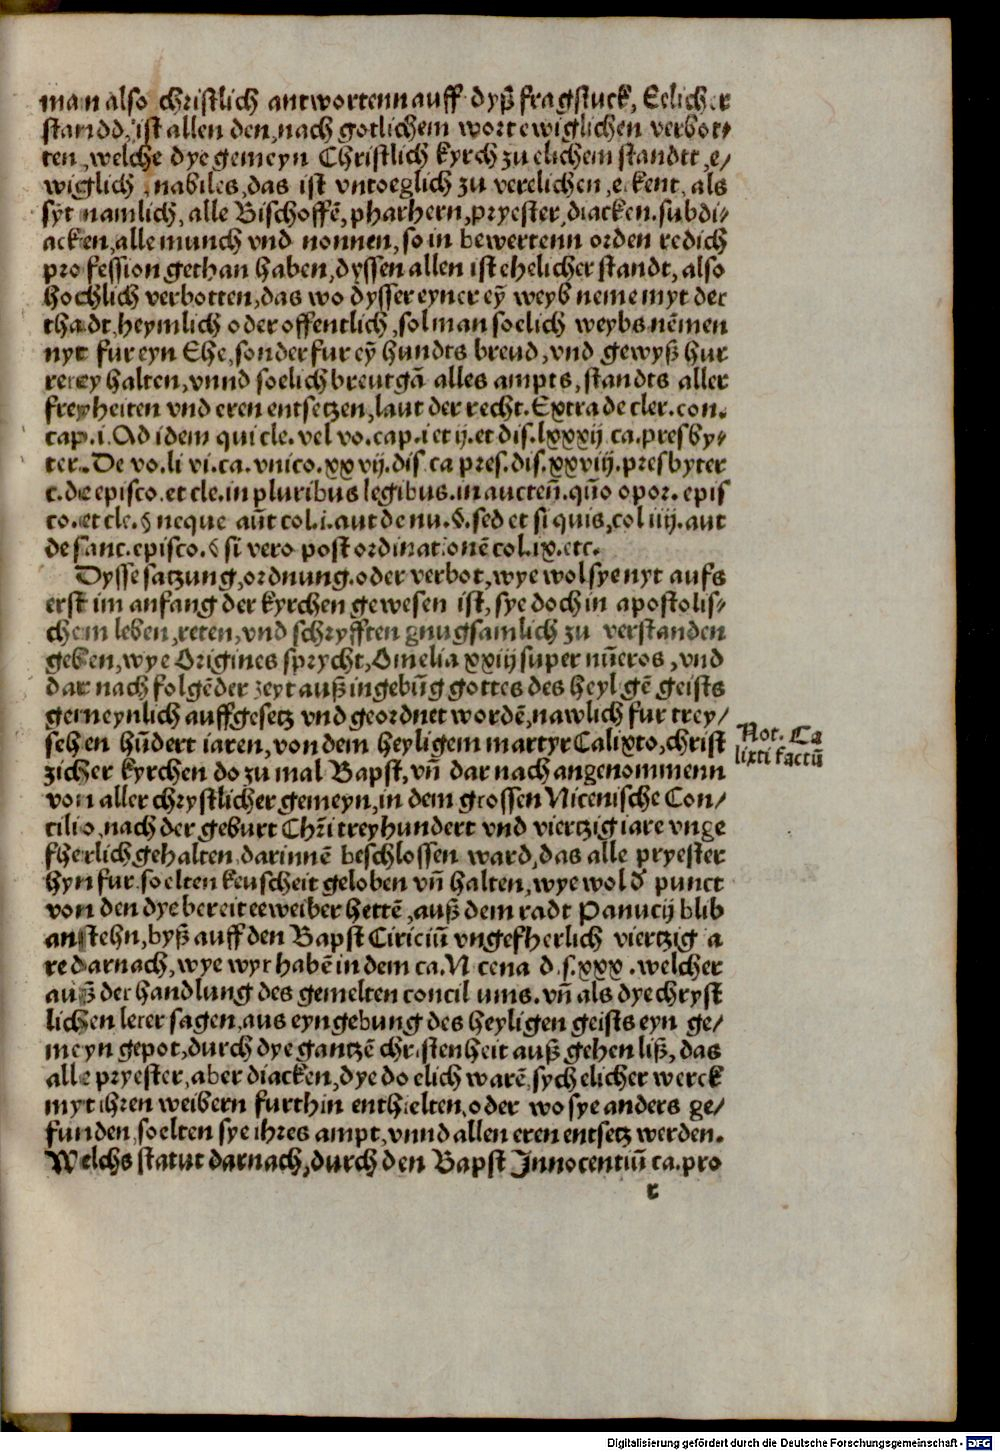 man also christlich antwortenn auff dyß fragstuck, Eelicher
standd, ist allen den, nach gotlichem wort ewiglichen verbot⸗
ten, welche dye gemeyn Christlich kyrch zu elichem standtt, e/
wiglich nabiles, das ist vntoeglich zu verelichen, erkent, als
syt namlich, alle Bischoffē, pharhern, pryester, diacken. subdi⸗
acken, alle munch vnd nonnen, so in bewertenn orden redich
profession gethan haben, dyssen allen ist ehelicher standt, also
hochlich verbotten, das wo dysser eyner eȳ weyb neme myt der
thadt, heymlich oder offentlich, sol man soelich weybs nēmen
nyt fur eyn Ehe, sonder fur eȳ hundts breud, vnd gewyß hur
rerey halten, vnnd soelich breutgā alles ampts, standts aller
freyheiten vnd eren entsetzen, laut der recht. Extra de cler. con.
cap. i. Ad idem qui cle. vel vo. cap. i et ij. et dis. lxxxij ca. presby⸗
ter. De vo. li vi. ca. vnico. xxvij. dis ca pres. dis. xxviij. presbyter
c. de episco. et cle. in pluribus legibus. in aucten̄. qūo opor. epis
co. et cle. § neque aūt col. i. aut de nu. §. sed et si quis, col iiij. aut
de sanc. episco. § si vero post ordinationē col. ix. etc.
Dysse satzung, ordnung. oder verbot, wye wol sye nyt aufs
erst im anfang der kyrchen gewesen ist, sye doch in apostolis⸗
chem leben, reten, vnd schryfften gnugsamlich zu verstanden
geben, wye Origines sprycht, Omelia xxiij super nūeros, vnd
dar nach folgēder zeyt auß ingebūg gottes des heylgē geists
gemeynlich auffgesetz vnd geordnet wordē, nawlich fur trey/
sehen hūdert iaren, von dem heyligem martyr Calixto, christ
zicher kyrchen do zu mal Bapst, vn̄ dar nach angenommenn
von aller chrystlicher gemeyn, in dem grossen Nicenische Con/
cilio, nach der geburt Chr̄i treyhundert vnd viertzig iare vnge
fherlich gehalten, darinnē beschlossen ward, das alle pryester
hyn fur soelten keuscheit geloben vn̄ halten, wye wol d̄ punct
von den dye bereit eeweiber hettē, auß dem radt Panucij blib
anstehn, byß auff den Bapst Ciriciū vngefherlich viertzig a
re darnach, wye wyr habē in dem ca. Nicena dis. xxx. welcher
auß der handlung des gemelten conciliums. vn̄ als dye chryst
lichen lerer sagen, aus eyngebung des heyligen geists eyn ge/
meyn gepot, durch dye gantzē christenheit auß gehen liß, das
alle pryester, aber diacken, dye do elich warē, sych elicher werck
myt ihren weibern furthin enthielten, oder wo sye anders ge/
funden, soelten sye ihres ampt, vnnd allen eren entsetz werden.
Welchs statut darnach, durch den Bapst Innocentiū ca. pro
Not. Ca
lixti factū
c
Digitalisierung gefördert durch die Deutsche Forschungsgemeinschaft - DFG